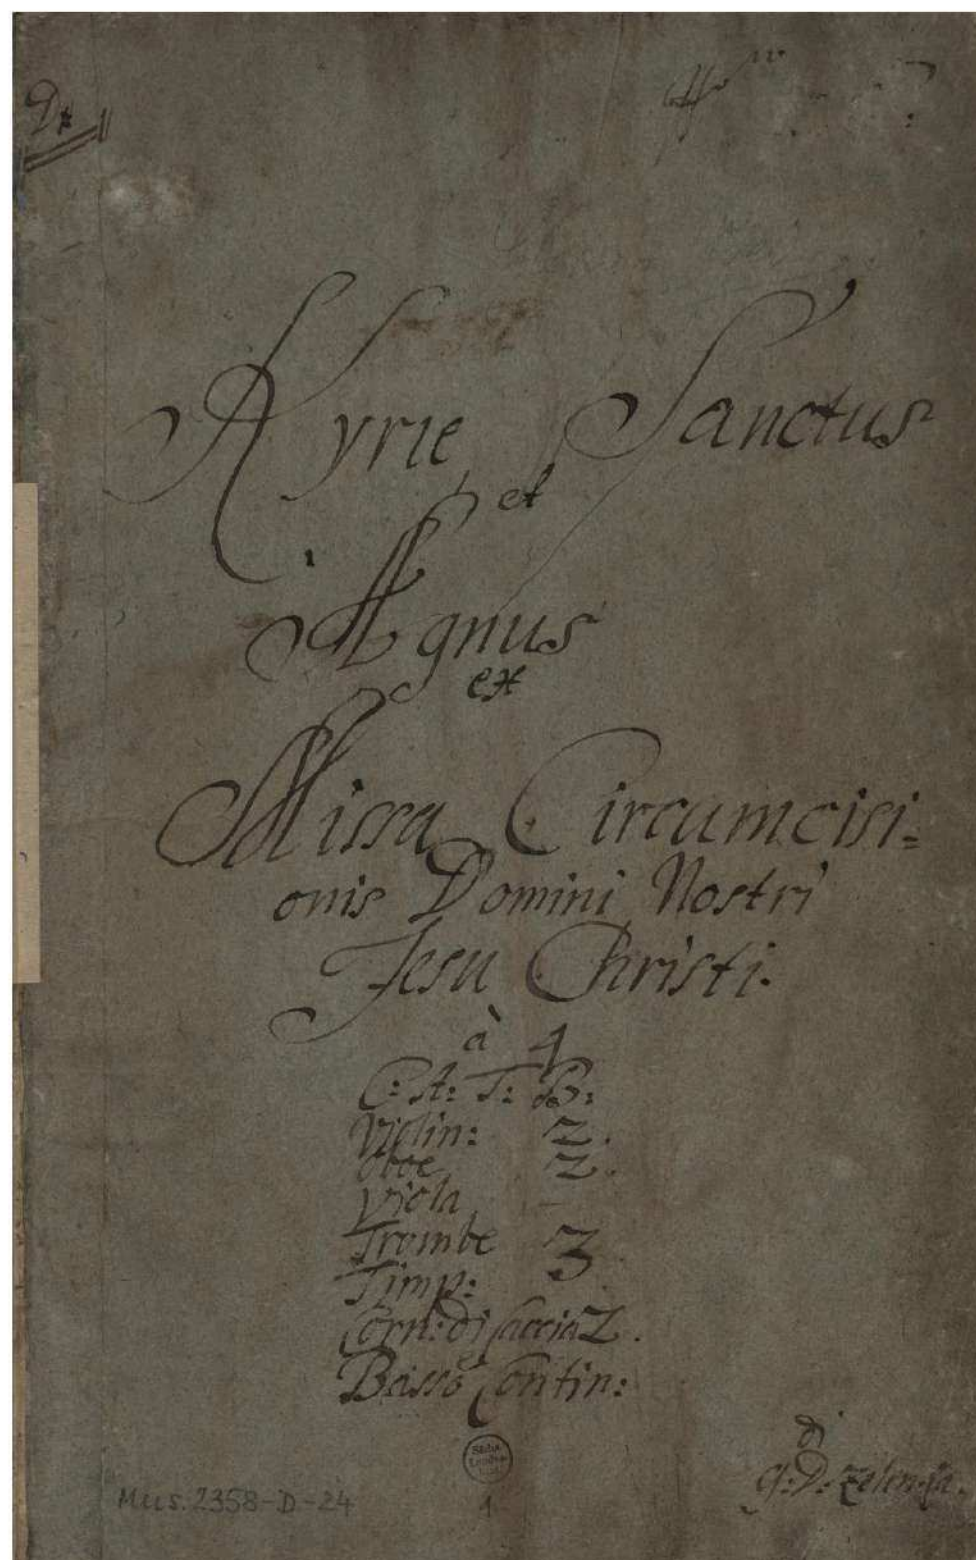 D#
Kyrie, Sanctus
et
Agnus
ex
Missa Circumcisi=
onis Domini Nostri
Jesu Christi.
à 4
C: A: T: B:
Violin: 2.
Oboe 2.
Viola
Trombe 3
Timp:
Corn: di Caccia 2.
Basso Contin:
di
G: D: Zelenka.
Mus. 2358-D-24
1